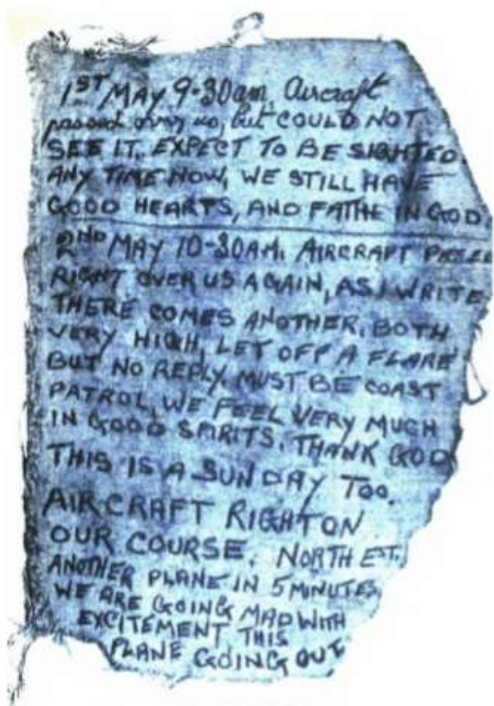 1ST MAY 9-30am, Aircraft
passed over us, but COULD NOT
SEE IT. EXPECT TO BE SIGHTED
ANY TIME NOW, WE STILL HAVE
GOOD HEARTS, AND FATHE IN GOD.
2ND MAY 10-30AM. AIRCRAFT
RIGHT OVER US AGAIN, AS I WRITE
THERE COMES ANOTHER, BOTH
VERY HIGH, LET OFF A FLARE
BUT NO REPLY, MUST BE COAST
PATROL, WE FEEL VERY MUCH
IN GOOD SPIRITS, THANK GOD
THIS IS A SUNDAY TOO.
AIRCRAFT RIGHT ON
OUR COURSE. NORTH EST.
ANOTHER PLANE IN 5 MINUTES
WE ARE GOING MAD WITH
EXCITEMENT THIS
PLANE GOING OUT